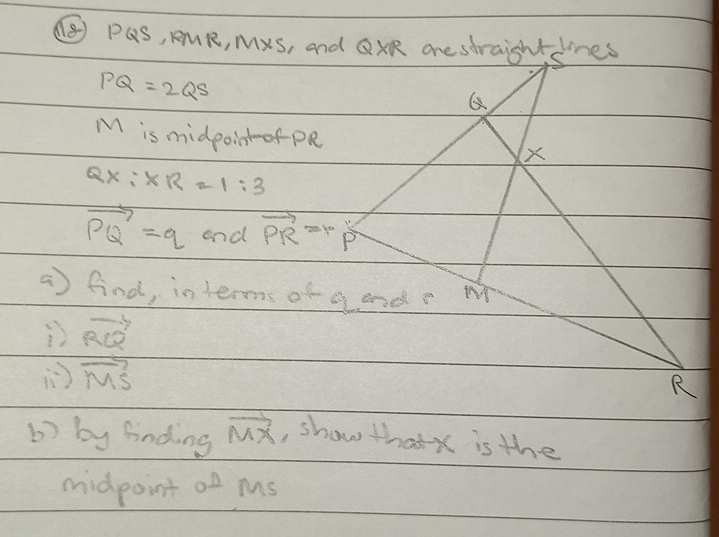 18 PQS, PMR, MXS, and QXR are straight lines
PQ = 2QS
M is midpoint of PR
QX : XR = 1 : 3
PQ = q and PR = r
a) find, in terms of q and r
i) RQ
ii) MS
b) by finding MX, show that x is the
midpoint of MS
S
Q
X
P
M
R